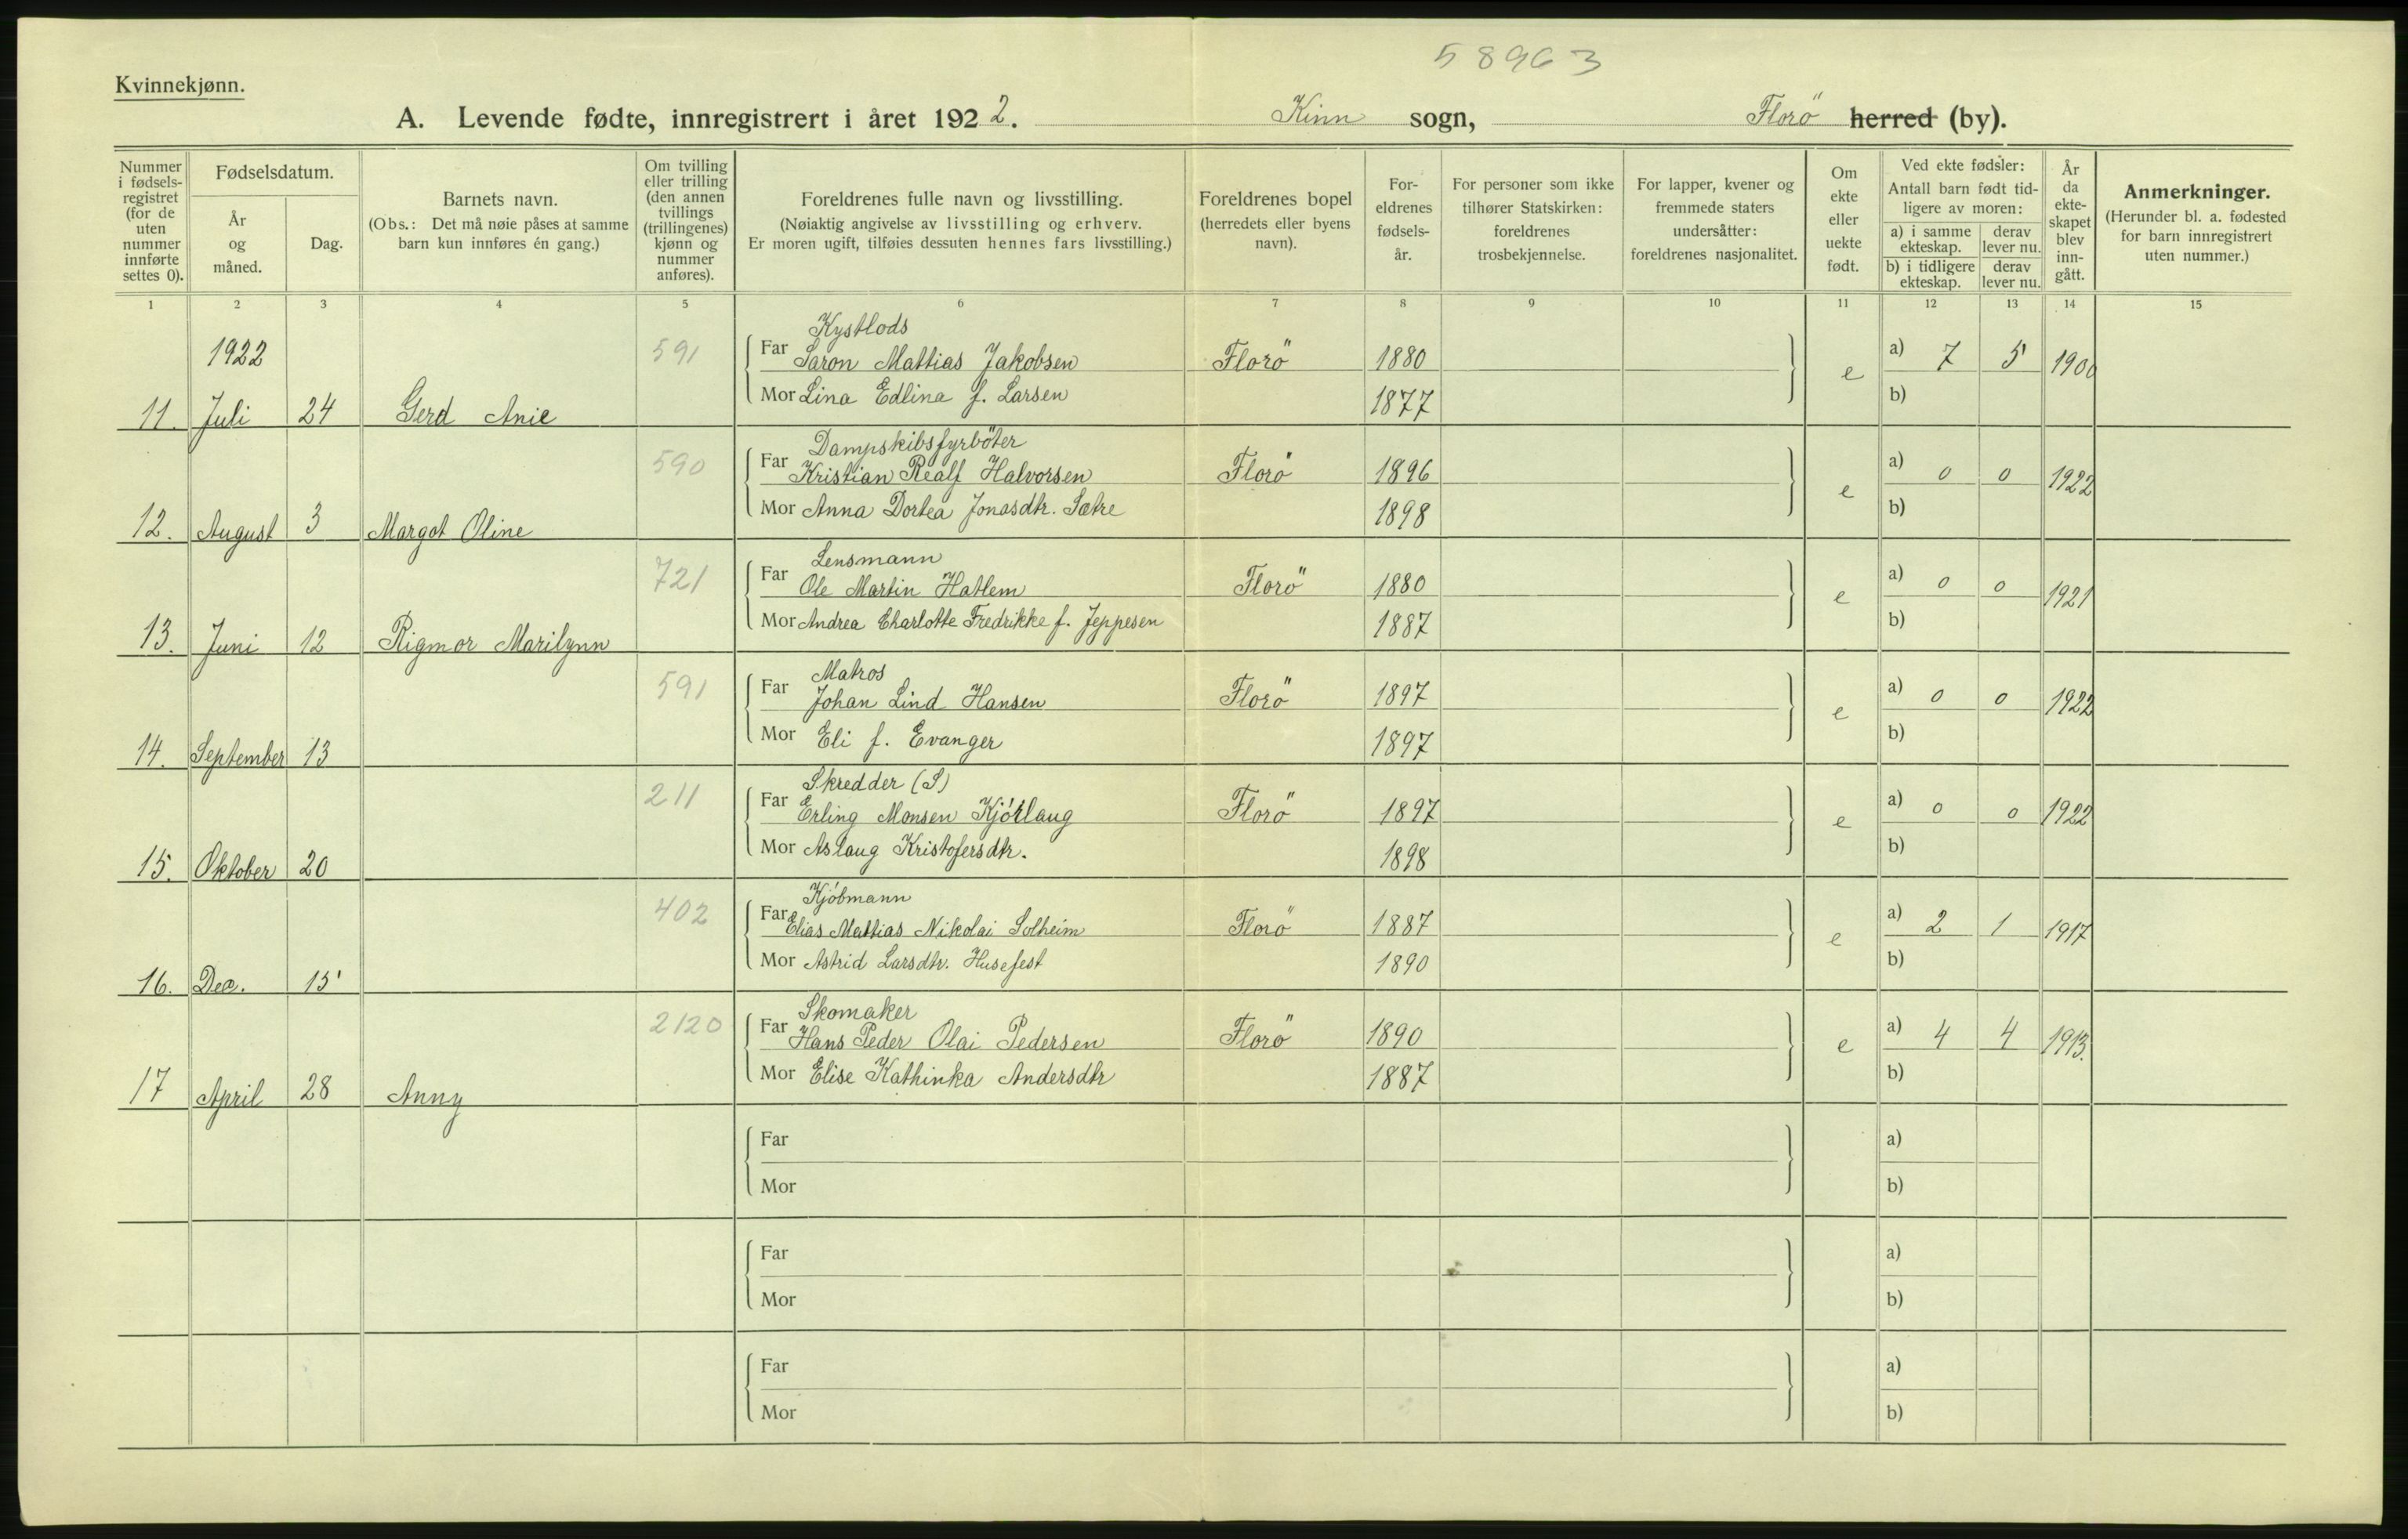 58963
Kvinnekjønn.
A. Levende fødte, innregistrert i året 1922. Kinn sogn, Florö herred (by).
Nummer i fødsels-registret (for de uten nummer innførte settes 0).
Fødselsdatum.
År og måned.
Dag.
Barnets navn.
(Obs.: Det må nøie påses at samme barn kun innføres én gang.)
Om tvilling eller trilling (den annen tvillings (trillingenes) kjønn og nummer anføres).
Foreldrenes fulle navn og livsstilling.
(Nøiaktig angivelse av livsstilling og erhverv.
Er moren ugift, tilføies dessuten hennes fars livsstilling.)
Foreldrenes bopel (herredets eller byens navn).
For-eldrenes fødsels-år.
For personer som ikke tilhører Statskirken: foreldrenes trosbekjennelse.
For lapper, kvener og fremmede staters undersåtter: foreldrenes nasjonalitet.
Om ekte eller uekte født.
Ved ekte fødsler:
Antall barn født tid-ligere av moren:
a) i samme ekteskap. derav lever nu.
b) i tidligere ekteskap. derav lever nu.
År da ekte-skapet blev inn-gått.
Anmerkninger.
(Herunder bl. a. fødested for barn innregistrert uten nummer.)
1 2 3 4 5 6 7 8 9 10 11 12 13 14 15
Kystlods
1922 591 Far Saron Mattias Jakobsen Florö 1880 e a) 7 5 1900
Mor Lina Edlina f. Larsen 1877 b)
11. Juli 24 Gerd Anie
Dampskibsfyrböter
590 Far Kristian Realf Halvorsen Florö 1896 e a) 0 0 1922
Mor Anna Dortea Jonasdtr. Sætre 1898 b)
12. August 3 Margot Oline
Lensmann
721 Far Ole Martin Hatlem Florö 1880 e a) 0 0 1921
Mor Andrea Charlotte Fredrikke f. Jeppesen 1887 b)
13. Juni 12 Rigmor Marilynn
Matros
591 Far Johan Lind Hansen Florö 1897 e a) 0 0 1922
Mor Eli f. Evanger 1897 b)
14. September 13
Skredder (S)
211 Far Erling Monsen Kjörlaug Florö 1897 e a) 0 0 1922
Mor Aslaug Kristofersdtr. 1898 b)
15. Oktober 20
Kjöbmann
402 Far Elias Mattias Nikolai Solheim Florö 1887 e a) 2 1 1917
Mor Astrid Larsdtr. Husefest 1890 b)
16. Dec. 15
Skomaker
2120 Far Hans Peder Olai Pedersen Florö 1890 e a) 4 4 1913.
Mor Elise Kathinka Andersdtr 1887 b)
17 April 28 Anny
Far a)
Mor b)
Far a)
Mor b)
Far a)
Mor b)